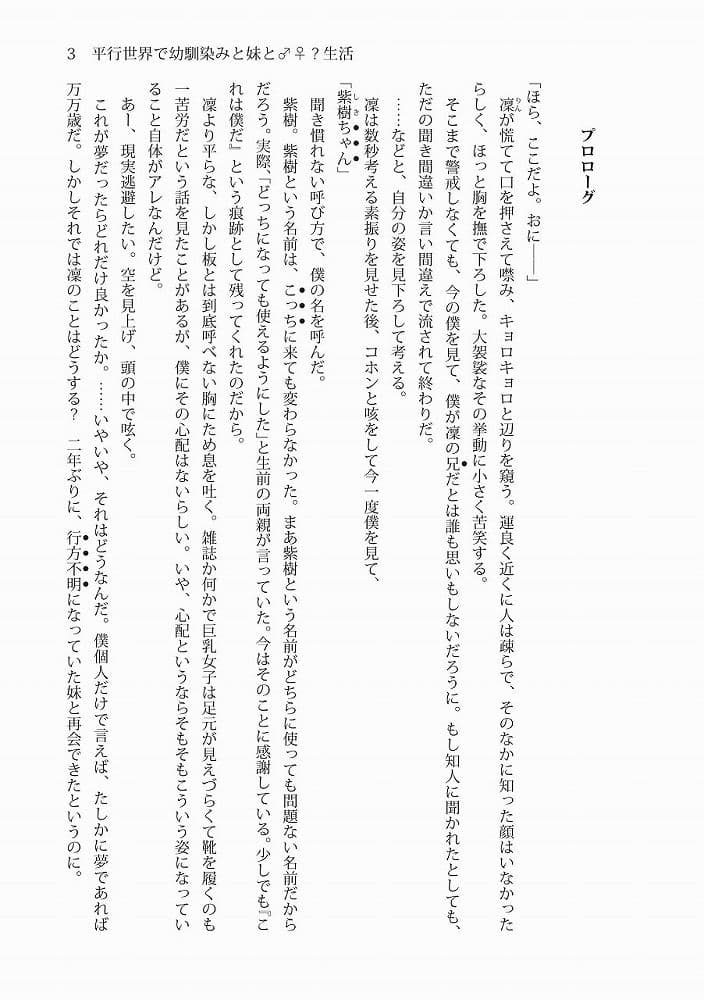 3 平行世界で幼馴染みと妹と♂♀？生活
プロローグ
「ほら、ここだよ。おに――」
凜が慌てて口を押さえて噤み、キョロキョロと辺りを窺う。運良く近くに人は疎らで、そのなかに知った顔はいなかった
らしく、ほっと胸を撫で下ろした。大袈裟なその挙動に小さく苦笑する。
そこまで警戒しなくても、今の僕を見て、僕が凜の兄だとは誰も思いもしないだろうに。もし知人に聞かれたとしても、
ただの聞き間違いか言い間違えで流されて終わりだ。
……などと、自分の姿を見下ろして考える。
凜は数秒考える素振りを見せた後、コホンと咳をして今一度僕を見て、
「紫樹ちゃん」
聞き慣れない呼び方で、僕の名を呼んだ。
紫樹。紫樹という名前は、こっちに来ても変わらなかった。まあ紫樹という名前がどちらに使っても問題ない名前だから
だろう。実際、「どっちになっても使えるようにした」と生前の両親が言っていた。今はそのことに感謝している。少しでも『こ
れは僕だ』という痕跡として残ってくれたのだから。
凜より平らな、しかし板とは到底呼べない胸にため息を吐く。雑誌か何かで巨乳女子は足元が見えづらくて靴を履くのも
一苦労だという話を見たことがあるが、僕にその心配はないらしい。いや、心配というならそもそもこういう姿になってい
ること自体がアレなんだけど。
あー、現実逃避したい。空を見上げ、頭の中で呟く。
これが夢だったらどれだけ良かったか。……いやいや、それはどうなんだ。僕個人だけで言えば、たしかに夢であれば
万万歳だ。しかしそれでは凜のことはどうする？　二年ぶりに、行方不明になっていた妹と再会できたというのに。